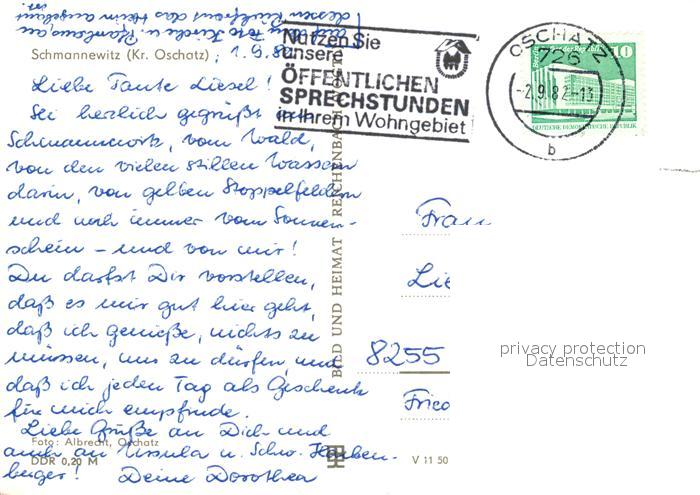 auf dessen Rückfront das Heim angebaut ist.
Schmannewitz (Kr. Oschatz) ; 1.9.82
Liebe Tante Liesel!
Sei herzlich gegrüßt aus
Schmannewitz, vom Wald,
von den vielen stillen Wassern
darin, von gelben Stoppelfeldern
und noch immer vom Sonnen-
schein – und von mir!
Du darfst Dir vorstellen,
daß es mir gut hier geht,
daß ich genieße, nichts zu
müssen, nur zu dürfen, und
daß ich jeden Tag als Geschenk
für mich empfinde.
Liebe Grüße an Dich und
auch an Ursula u. Schw.
berger! Deine Dorothea
Foto: Albrecht, Oschatz
DDR 0,20 M
V 11 50
BILD UND HEIMAT REICHENBACH
Nutzen Sie
unsere
ÖFFENTLICHEN
SPRECHSTUNDEN
in Ihrem Wohngebiet
OSCHATZ
726
-2.9.82-13
b
10
DEUTSCHE DEMOKRATISCHE REPUBLIK
Frau
Lie
8255
Fried
privacy protection
Datenschutz